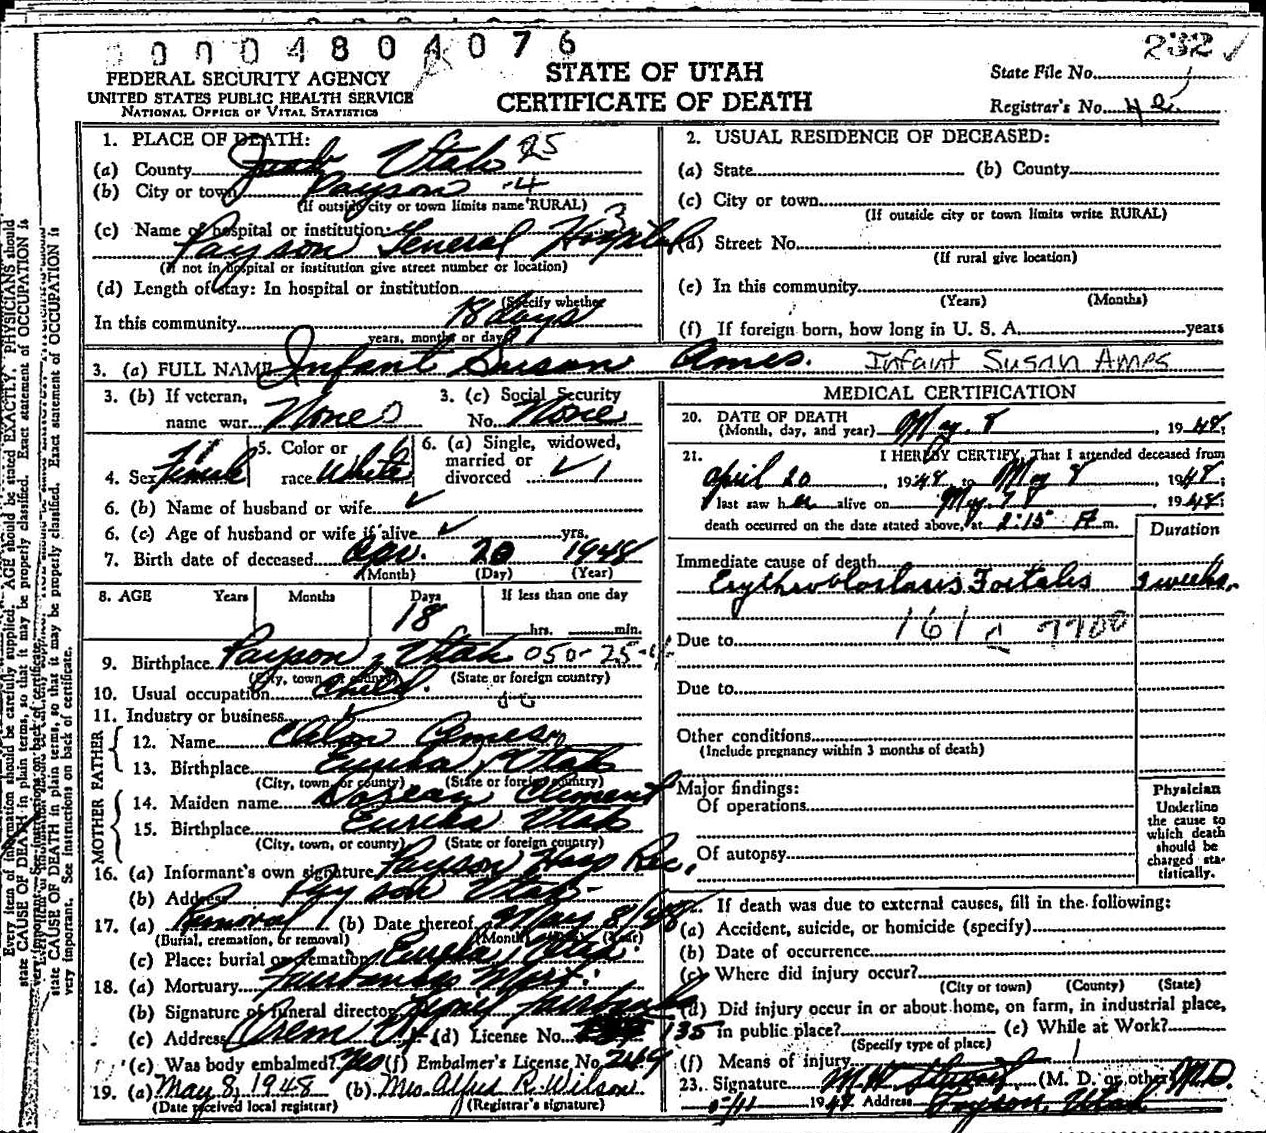 00004804076
232 ✓
FEDERAL SECURITY AGENCY
UNITED STATES PUBLIC HEALTH SERVICE
NATIONAL OFFICE OF VITAL STATISTICS
STATE OF UTAH
CERTIFICATE OF DEATH
State File No.
Registrar's No. 45
1. PLACE OF DEATH:
(a) County Juab Utah 25
(b) City or town Payson -4
(If outside city or town limits name RURAL)
3
(c) Name of hospital or institution:
Payson General Hospital
(If not in hospital or institution give street number or location)
(d) Length of stay: In hospital or institution
(Specify whether
In this community 18 days
years, months or days)
2. USUAL RESIDENCE OF DECEASED:
(a) State (b) County
(c) City or town
(If outside city or town limits write RURAL)
(d) Street No.
(If rural give location)
(e) In this community
(Years) (Months)
(f) If foreign born, how long in U. S. A. years
3. (a) FULL NAME Infant Susan Ames. Infant Susan Ames
3. (b) If veteran,
name war None
3. (c) Social Security
No. None
4. Sex Female
5. Color or
race White
6. (a) Single, widowed,
married or
divorced ✓ 1
6. (b) Name of husband or wife ✓
6. (c) Age of husband or wife if alive ✓ yrs.
7. Birth date of deceased Apr. 20 1948
(Month) (Day) (Year)
8. AGE Years Months Days If less than one day
18
hrs. min.
9. Birthplace Payson, Utah 050-25-
(City, town or county) (State or foreign country)
10. Usual occupation Child.
11. Industry or business
FATHER
12. Name Ames
13. Birthplace Eureka, Utah
(City, town, or county) (State or foreign country)
MOTHER
14. Maiden name Clement
15. Birthplace Eureka Utah
(City, town, or county) (State or foreign country)
16. (a) Informant's own signature Payson Hosp Rec.
(b) Address Payson Utah
17. (a) Removal (b) Date thereof May 8/48
(Burial, cremation, or removal) (Month) (Year)
(c) Place: burial or cremation Eureka
18. (a) Mortuary
(b) Signature of funeral director
(c) Address Orem (d) License No. 135
(e) Was body embalmed? Yes (f) Embalmer's License No. 2169
19. (a) May 8, 1948 (b) Mrs. R. Wilson
(Date received local registrar) (Registrar's signature)
MEDICAL CERTIFICATION
20. DATE OF DEATH
(Month, day, and year) May. 8, 1948;
21. I HEREBY CERTIFY, That I attended deceased from
April 20, 1948, to May 8, 1948;
I last saw her alive on May 7 8, 1948;
death occurred on the date stated above, at 2:15 A m.
Duration
Immediate cause of death
Erythroblostasis Foetalis 3 weeks.
161 7700
Due to
Due to
Other conditions
(Include pregnancy within 3 months of death)
Major findings:
Of operations
Of autopsy
Physician
Underline
the cause to
which death
should be
charged sta-
tistically.
22. If death was due to external causes, fill in the following:
(a) Accident, suicide, or homicide (specify)
(b) Date of occurrence
(c) Where did injury occur?
(City or town) (County) (State)
(d) Did injury occur in or about home, on farm, in industrial place,
in public place? (e) While at Work?
(Specify type of place)
(f) Means of injury
23. Signature M.D. (M. D. or other)
5/11 1948 Address Payson, Utah
Every item of information should be carefully supplied. AGE should be stated EXACTLY. PHYSICIANS should
state CAUSE OF DEATH in plain terms, so that it may be properly classified. Exact statement of OCCUPATION is
very important. See instructions on back of certificate.
state CAUSE OF DEATH in plain terms, so that it may be properly classified. Exact statement of OCCUPATION is
very important. See instructions on back of certificate.